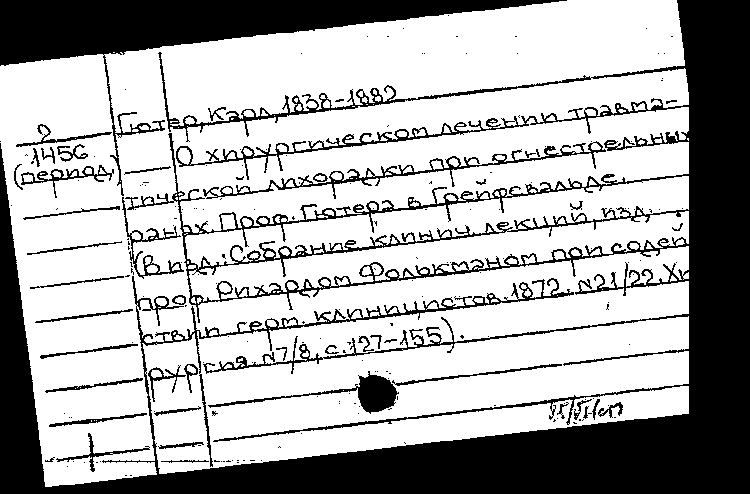 Гютер, Карл, 1838-1882
2
1456
(период.)
О хирургическом лечении травма-
тической лихорадки при огнестрельных
ранах. Проф. Гютера в Грейфсвальде.
(В изд.: Собрание клинич. лекций, изд.
проф. Рихардом Фолькманом при содей
ствии герм. клиницистов. 1872. №21/22. Хи
рургия. №7/8, с. 127-155).